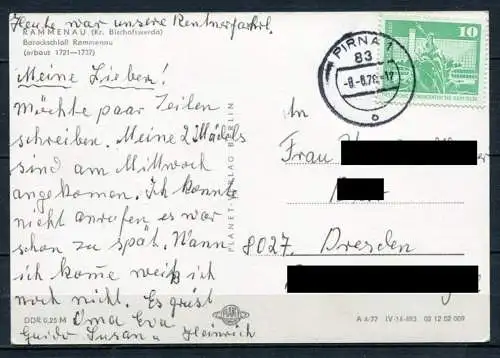 Heute war unsere Rentnerfahrt.
RAMMENAU (Kr. Bischofswerda)
Barockschloß Rammenau
(erbaut 1721—1737)
Meine Lieben!
Möchte paar Zeilen
schreiben. Meine 2 Mädels
sind am Mittwoch
angekomen. Ich konnte
nicht anrufen es war
schon zu spät. Wann
ich kome weiß ich
noch nicht. Es grüst
Oma Eva
Guido Susan u Heinrich
DDR 0,25 M
PLANET-VERLAG BERLIN
PIRNA 1
83
-8.-6.78.-12
10
DEUTSCHE DEMOKRATISCHE REPUBLIK
An
Frau
8027. Dresden
A 4-77 IV-14-483 02 12 02 009